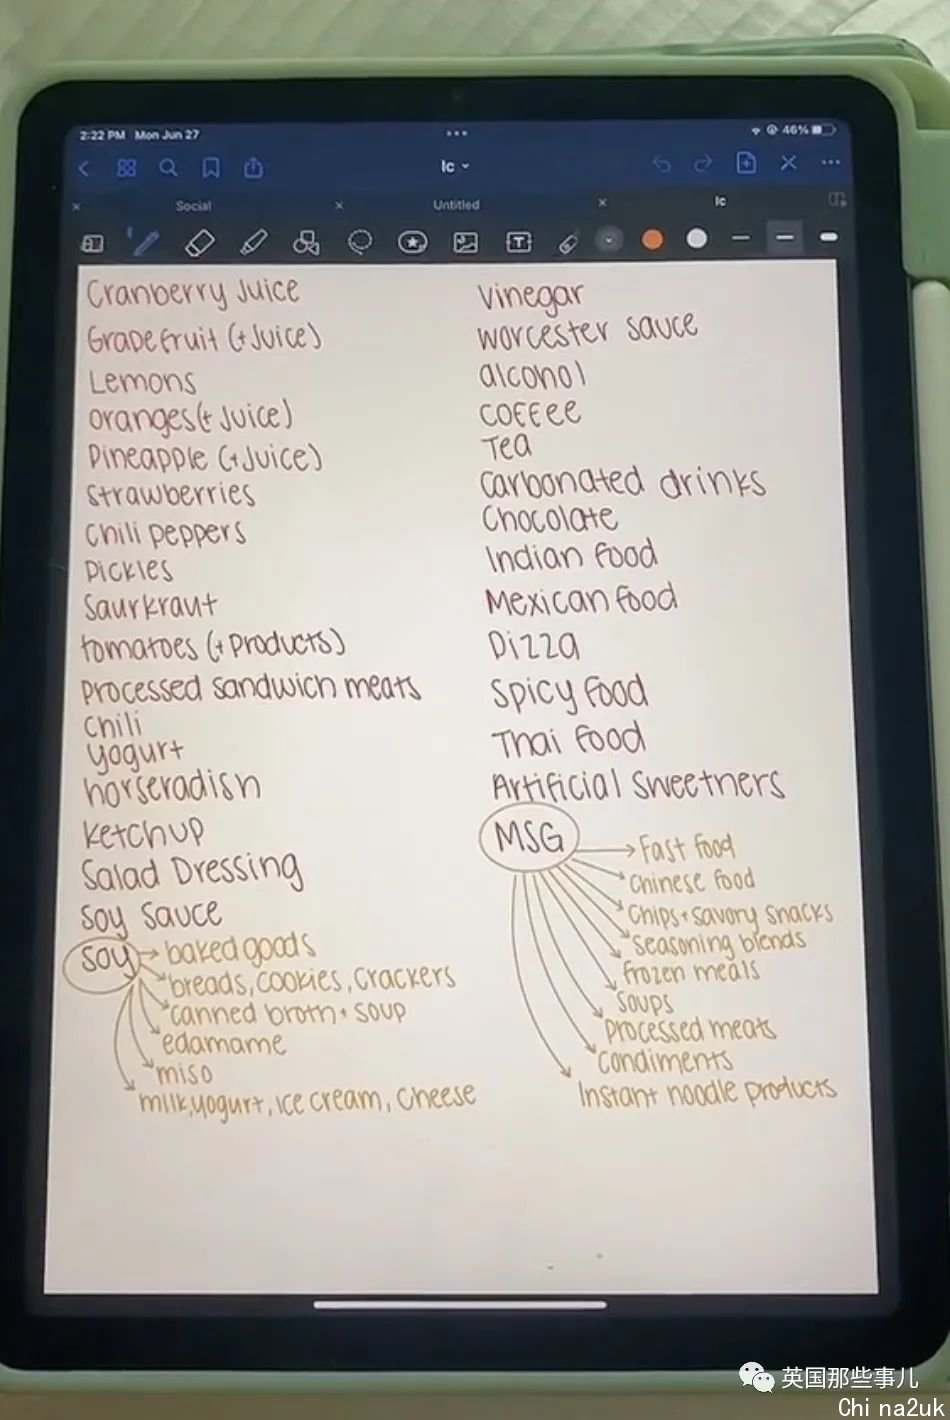 2:22 PM Mon Jun 27
46%
Ic
Social
Untitled
Ic
Cranberry Juice
Grapefruit (+Juice)
Lemons
oranges (+ Juice)
Pineapple (+Juice)
Strawberries
Chili peppers
Pickles
Saurkraut
tomatoes (+ Products)
Processed sandwich meats
Chili
yogurt
horseradish
Ketchup
Salad Dressing
Soy Sauce
Soy
baked goods
breads, cookies, crackers
canned broth + soup
edamame
miso
milk, yogurt, ice cream, cheese
Vinegar
Worcester sauce
alcohol
COFFee
Tea
Carbonated drinks
Chocolate
Indian Food
Mexican food
Pizza
Spicy Food
Thai Food
Artificial Sweetners
MSG
Fast food
Chinese food
Chips + savory snacks
Seasoning blends
frozen meals
Soups
Processed meats
Condiments
Instant noodle products
英国那些事儿
China2uk